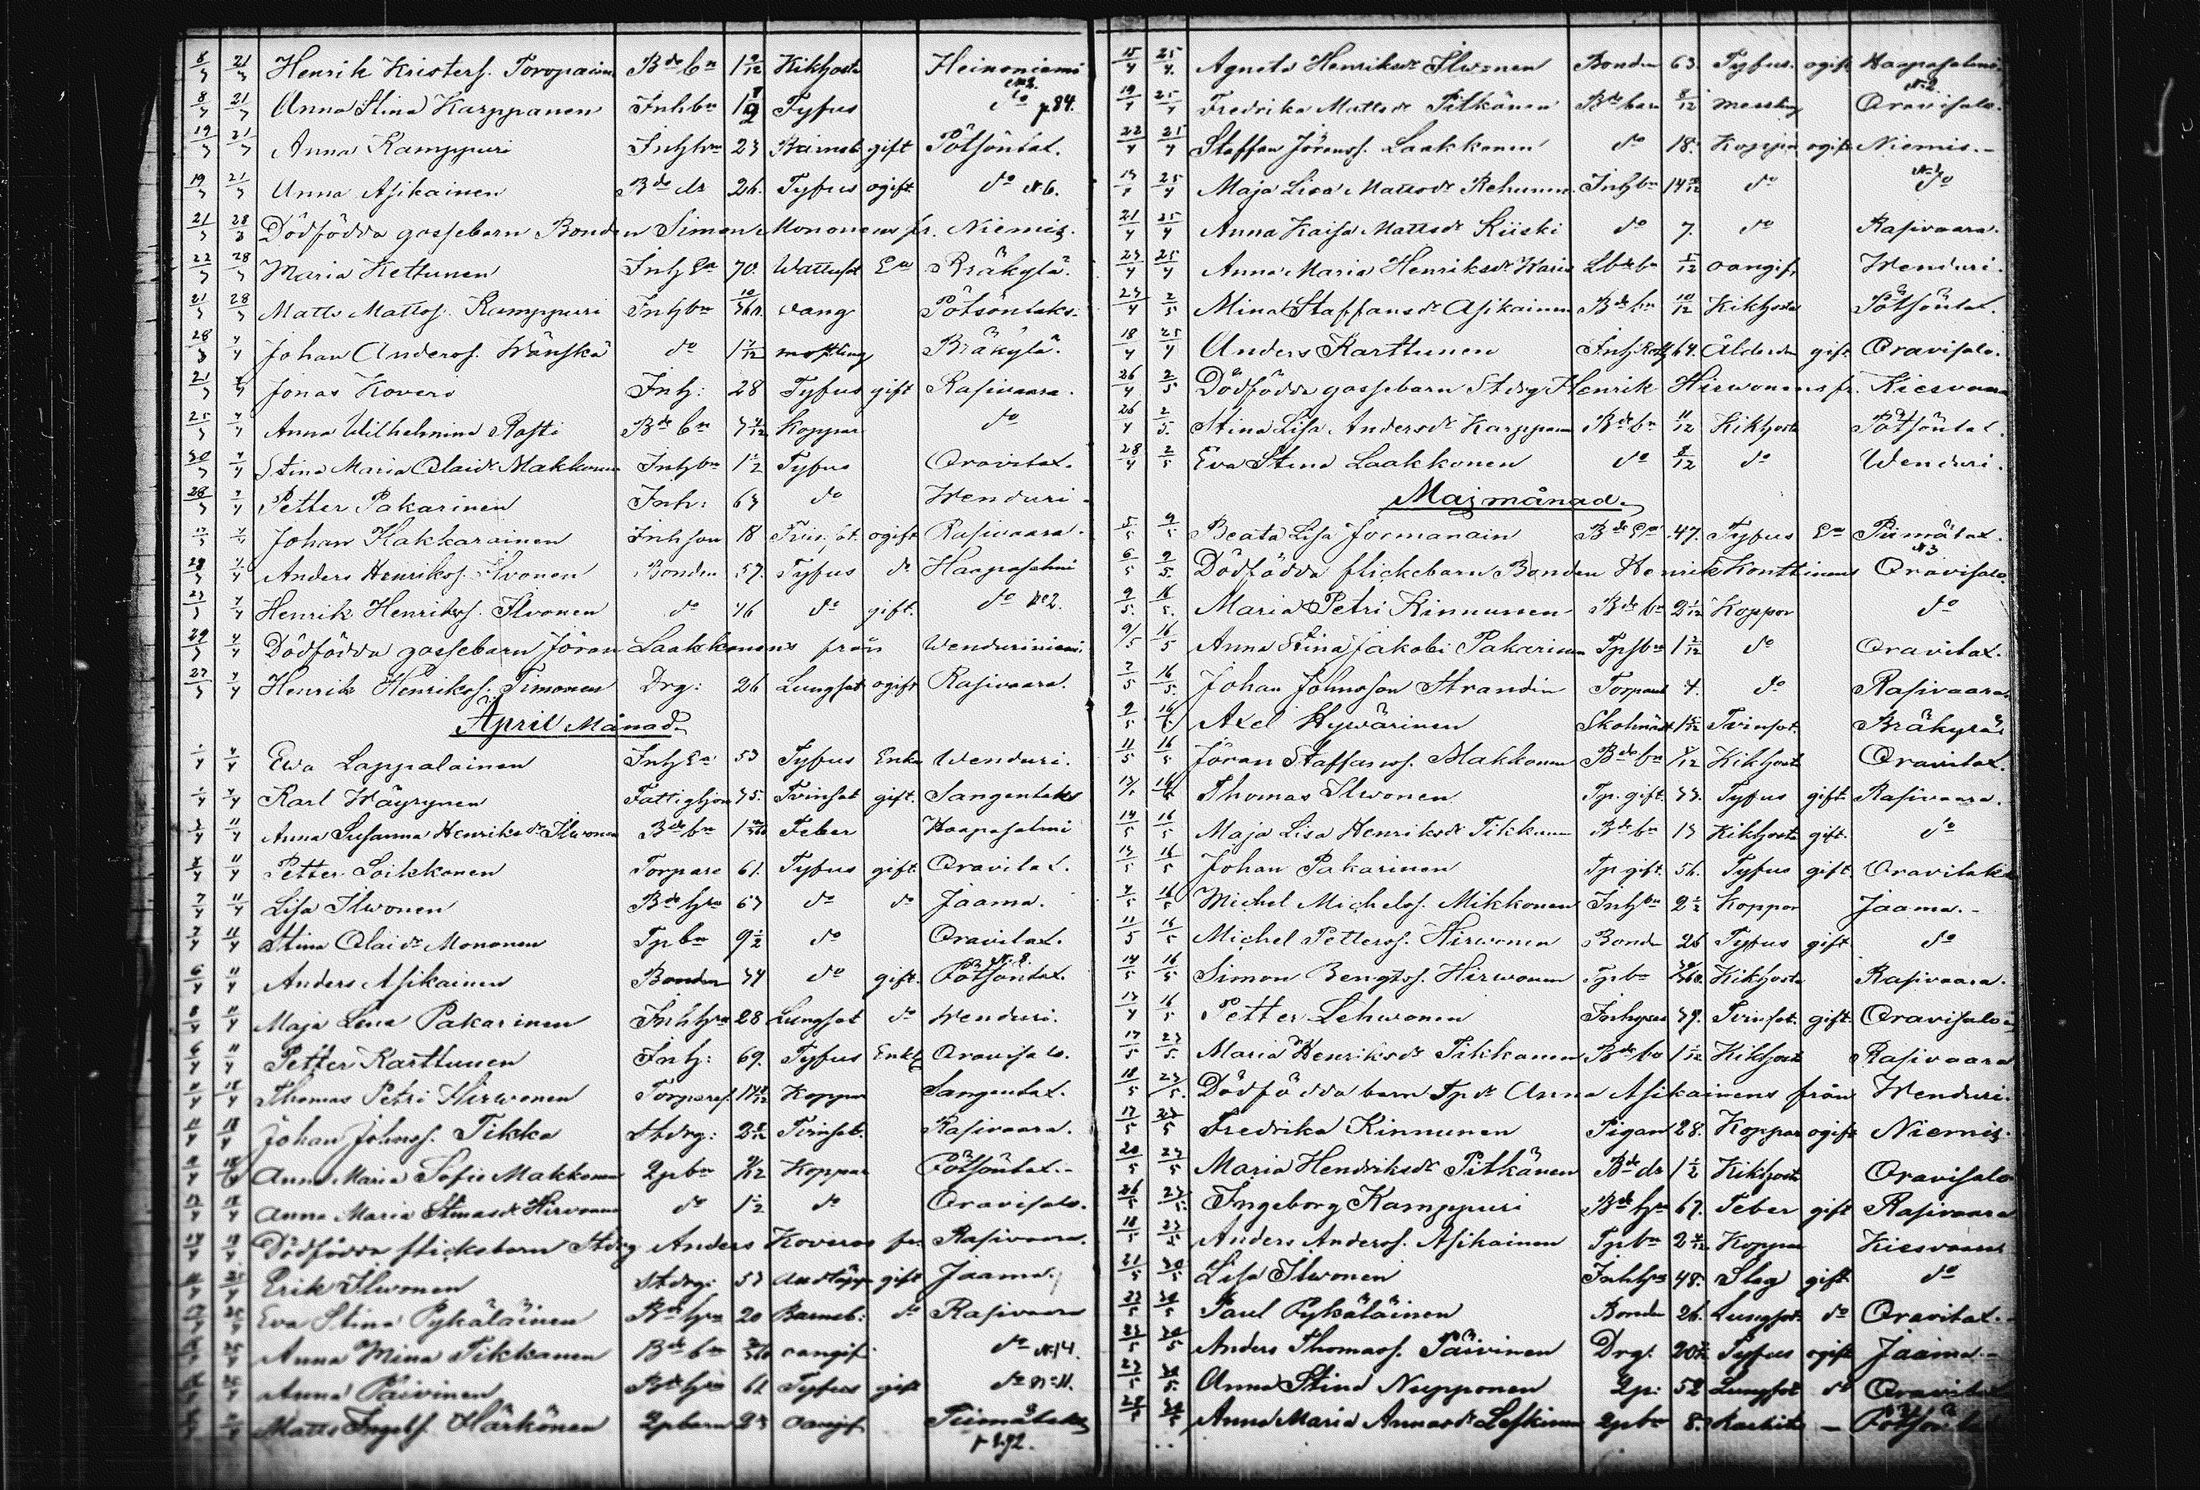 8/3 21/3 Henrik Kristers. Toropainen Bde bn 1 9/12 Kikhosta Heinoniemi
8/3 21/3 Anna Stina Karppanen Inhbn 1 1/2 Tyfus do p 84.
19/3 21/3 Anna Kamppuri Inhhu 23 Barnsb gift Pötsöntax.
19/3 21/3 Anna Asikainen Bde dr 26. Tyfus ogift do N 6.
21/3 28/3 Dödfödda gossebarn Bonden Simon Mononens fr. Niemis.
22/3 28/3 Maria Kettunen Inh Ea 70. Wattusot Ea Bräkylä.
21/3 28/3 Matts Mattss. Kamppuri Inhbn oang Pötsöntaks.
28/3 4/4 Johan Anderss. Wänskä do messling Bräkylä.
21/3 4/4 Jonas Kovero Inh: 28 Tyfus gift Rasivaara.
25/3 4/4 Anna Wilhelmina Rasti Bde bn Koppor do
30/3 4/4 Stina Maria Olaidr Makkonen Inhbn 1 1/2 Tyfus Oravitax.
28/3 4/4 Petter Pakarinen Inh: 63 do Wenduri.
4/4 Johan Hakkarainen Inhson 18 Tvinsot. ogift Rasivaara.
4/4 Anders Henrikss. Ilvonen Bonden 57. Tyfus do Haapasalmi
23/3 4/4 Henrik Henrikss. Ilvonen do 46 do gift. do No2.
29/3 4/4 Dödfödda gossebarn Jöran Laakkonens från Wenduriniemi.
27/3 4/4 Henrik Henrikss. Timonen Drg: 26 Lungsot ogift Rasivaara.
April Månad.
1/4 4/4 Ewa Lappalainen Inh Ea 53 Tyfus Enka Wenduri.
1/4 4/4 Karl Häyrynen Fattighjon 75. Tvinsot gift. Sangentaks
3/4 11/4 Anna Susanna Henriksdr Ilwonen Bde bn Feber Haapasalmi
11/4 Petter Soikkonen Torpare 61. Tyfus gift Oravitax.
7/4 11/4 Lisa Ilwonen Bde hu 63 do do Jaama.
7/4 11/4 Stina Olaidr Mononen Tpbn 9 1/2 do Oravitax.
6/4 11/4 Anders Asikainen Bonden 34 do gift. Pötsöntax. N. 8.
8/4 11/4 Maja Lena Pakarinen Inhhu 28 Lungsot do Wenduri.
6/4 11/4 Petter Karttunen Inh: 69. Tyfus Enkl Oravisalo.
11/4 18/4 Thomas Petri Hirwonen Torpares. Koppor Sangentax.
11/4 18/4 Johan Johnss. Tikka Stdrg: Tvinsot. Rasivaara.
9/4 18/4 Anna Maria Sofia Makkonen Lpbn Koppor Pötsöntax.
18/4 Anna Maria Stinasdr Hirvonen do 1 1/2 do Oravisalo.
18/4 Dödfödda flickebarn Stdrg Anders Koveros fr. Rasivaara.
25/4 Erik Ilwonen Stdrg: 53 Andtäppa gift Jaama.
25/4 Eva Stina Pykäläinen Bde hu 20 Barnsb: do Rasivaara
25/4 Anna Mina Tikkanen Bde bn oangif. do N 14.
25/4 Anna Päivinen Bde hu 61 Tyfus gift do No 11.
Matts Ingels. Härkönen Lpbarn 23 oangif. Piimätaks
p 892.
15/4 25/4 Agneta Henriksdr Ilwonen Bonden 63. Tyfus. ogift Haapasalmi.
19/4 25/4 Fredrika Mattsdr Pitkänen Bde barn 8/12 messling Oravisalo. N-2.
22/4 25/4 Staffan Jöranss. Laakkonen do 18. Koppor ogift Niemis.
25/4 Maja Lisa Mattsdr Rehunen. Inhbn do do
21/4 25/4 Anna Kaisa Mattsdr Kiiski do 7. do Rasivaara.
23/4 25/4 Anna Maria Henriksdr Waris Lbde bn 5/12 oangif. Wenduri.
23/4 2/5 Mina Staffansdr Asikainen Bde bn 10/12 Kikhosta Pötsöntax.
18/4 25/4 Anders Karttunen 64. Ålderdom gift Oravisalo.
26/4 2/5 Dödfödda gossebarn Stdrg Henrik Hirwonens fr. Kiesvaara
26/4 2/5. Stina Lisa Andersdr Karppanen Bde bn 11/12 Kikhosta Pötsöntax.
28/4 2/5 Eva Stina Laakkonen do 8/12 do Wenduri.
Maj månad.
5/5 9/5 Beata Lisa Jormanain Bde Ea 47. Tyfus Ea Piimätax.
6/5 9/5. Dödfödda flickebarn Bonden Henrik Konttinens Oravisalo. N 3
9/5. 16/5. Maria Petri Kinnunen Bde bn 2 1/12 Koppor do
9/5 16/5 Anna Stina Jakobi Pakarinen Tpbn 1 2/12 do Oravitax.
7/5 16/5. Johan Johnsson Strandin Torpares 4. do Rasivaara
9/5 16/5 Axel Hywärinen Skolmäst. Tvinsot. Bräkylä
11/5 16/5 Jöran Staffanss. Makkonen Bde bn Kikhosta Oravitax.
16/5 Thomas Ilwonen Tp. gift. 33. Tyfus gift Rasivaara.
14/5 16/5 Maja Lisa Henriksdr Tikkanen Bde bn 13 Kikhosta gift. do
13/5 16/5 Johan Pakarinen Tp gift. 56. Tyfus gift. Oravitaks
9/5 16/5 Michel Michelss. Mikkonen Inhbn 2 1/2 Koppor Jaama.
11/5 16/5 Michel Petterss. Hirwonen Bonde 26 Tyfus gift do
14/5 16/5 Simon Bengtss. Hirwonen Tpbn Kikhosta Rasivaara.
16/5 Petter Lehwonen Inhyses 39. Tvinsot. gift. Oravisalo
17/5 23/5. Maria Henriksdr Tikkanen Bde bn Kikhosta Rasivaara
18/5 23/5. Dödfödda barn Tpdr Anna Asikainens från Wenduri.
17/5 23/5 Fredrika Kinnunen Pigan 28. Koppor ogift Niemis.
20/5 23/5 Maria Hendriksdr Pitkänen Bde dr 1 1/2 Kikhosta Oravisalo
26/5 23/5. Ingeborg Kamppuri Bde hu 67. Feber gift Rasivaara
18/5 23/5 Anders Anderss. Asikainen Tpbn Koppor Kiesvaara
21/5 30/5 Lisa Ilwonen Inhhu 48. Slag gift do
22/5 30/5 Paul Pykäläinen Bonden 26. Lungsot. do Oravitax.
30/5 Anders Thomass. Päivinen Drg. Tyfus ogift Jaama.
23/5 30/5. Anna Stina Nupponen Lp: 52 Lungsot do Oravitax
30/5 Anna Maria Annasdr Leskinen Lpbn 8. Rachitis — Pötsöntax